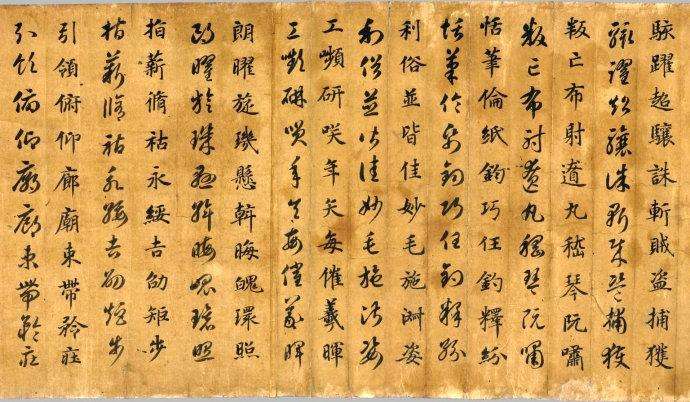 駭躍超驤誅斬賊盗捕獲
駭躍超驤誅斬賊盗捕獲
叛亡布射遼丸嵇琴阮嘯
叛亡布射遼丸嵇琴阮嘯
恬筆倫紙鈞巧任釣釋紛
恬筆倫紙鈞巧任釣釋紛
利俗並皆佳妙毛施淑姿
利俗並皆佳妙毛施淑姿
工嚬研咲年矢每催羲暉
工嚬研咲年矢每催羲暉
朗曜旋璣懸斡晦魄環照
朗曜旋璣懸斡晦魄環照
指薪脩祜永綏吉劭矩步
指薪脩祜永綏吉劭矩步
引領俯仰廊廟束帶矜莊
引領俯仰廊廟束帶矜莊